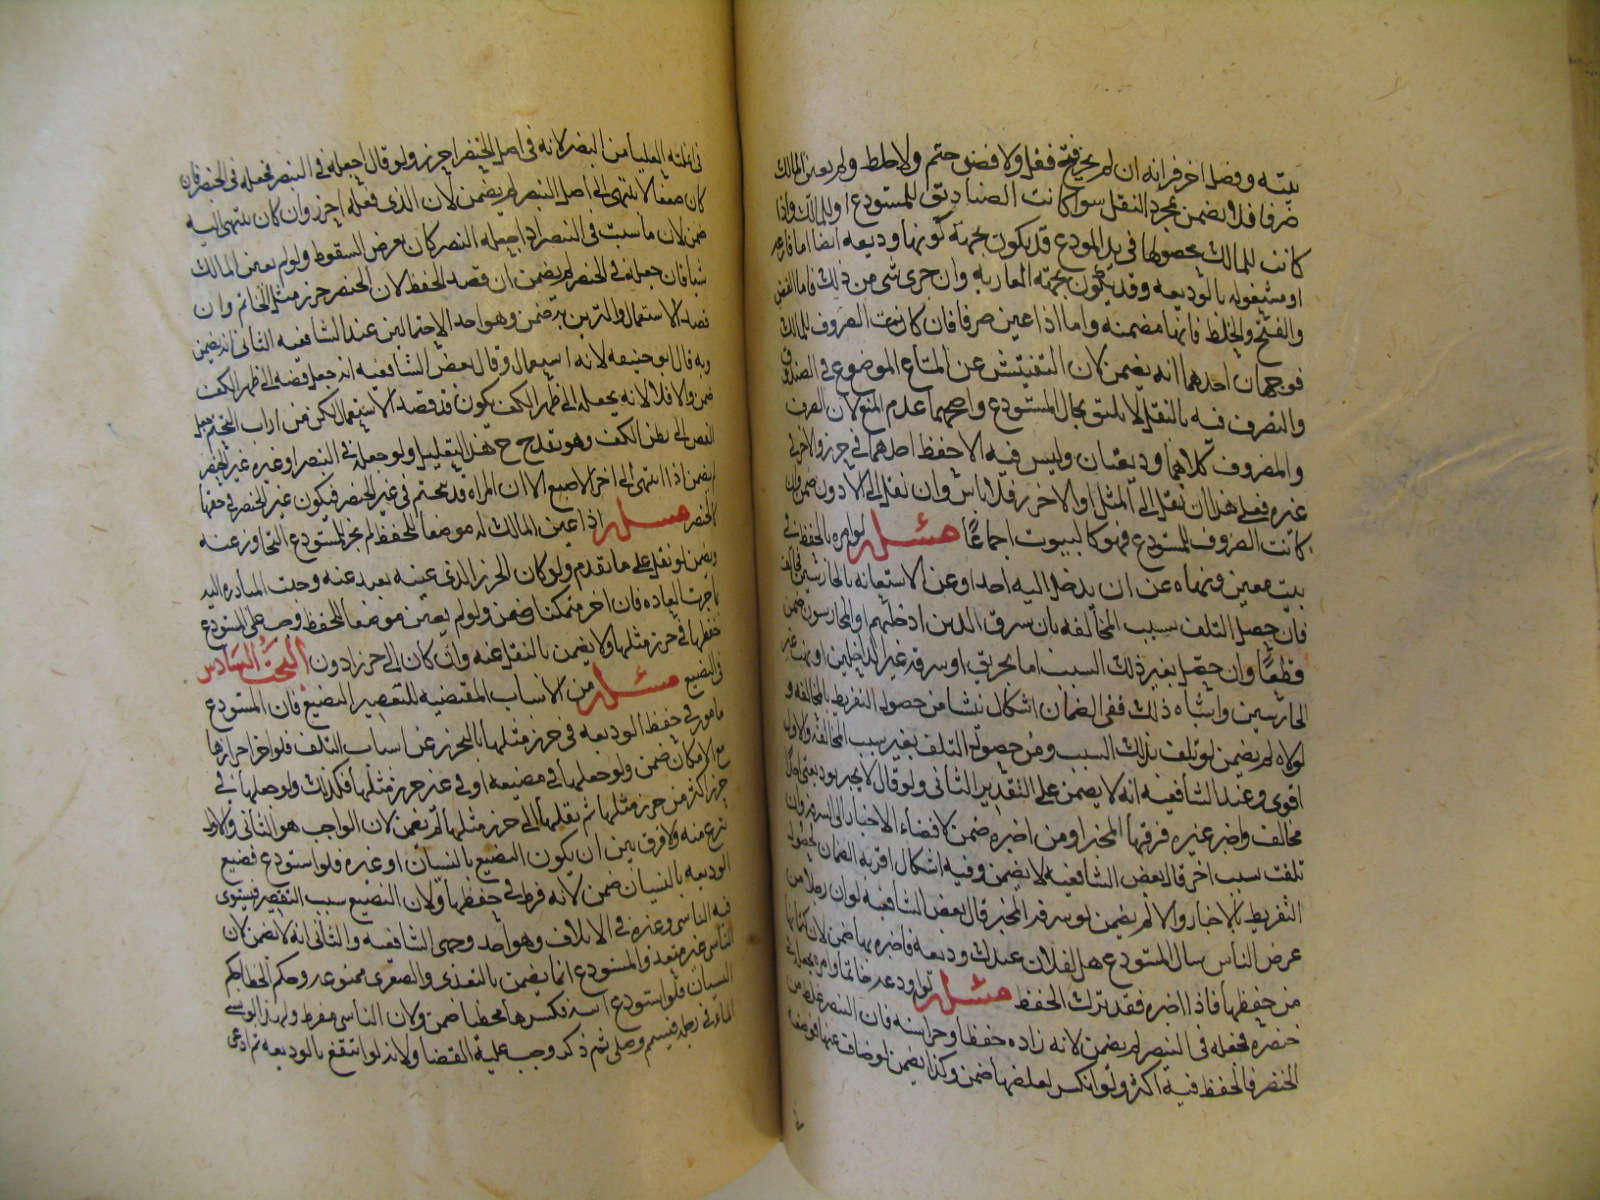 بيته وفصل اخر فرانه ان لم يجر فتح قفل ولا فض ختم ولا خلط ولم يعين المالك
ظرفا فلا يضمن بمجرد النقل سوا كانت الصناديق للمستودع او للمالك واذا
كانت للمالك فحصولها في يد المودع قد يكون بجهة كونها وديعه ايضا اما فارغه
او مشغوله بالوديعه وقد يكون بجهة العاريه وان جرى شي من ذلك فاما الفض
والفتح والخلط فانها مضمنه واما اذا عين ظرفا فان كانت الظروف للمالك
فوجهان احدهما انه يضمن لان التفتيش عن المتاع الموضوع في الصندوق
والتصرف فيه بالنقل لا يليق بحال المستودع واصحهما عدم المنع لان الظرف
والمظروف كلاهما وديعتان وليس فيه الا حفظ احدهما في حرز والاخر في
غيره فعلى هذا ان نقل الى المثل او الاحرز فلا باس وان نقل الى الادون ضمن وان
كانت الظروف للمستودع فهو كالبيوت اجماعا مسئله لو امره بالحفظ في
بيت معين ونهاه عن ان يدخل اليه احدا وعن الاستعانه بالحارسين فخالف
فان حصل التلف بسبب المخالفه بان سرق الذين ادخلهم او الحارسون ضمن
قطعا وان حصل بغير ذلك السبب اما بحريق او سرقه غير الداخلين او نهب غير
الحارسين واشباه ذلك ففي الضمان اشكال ينشا من حصول التفريط بالمخالفه و
لولاه لم يضمن لو تلف بذلك السبب ومن حصول التلف بغير سبب المخالفه والاول
اقوى وعند الشافعيه انه لا يضمن على التقدير الثاني ولو قال لا يخبر بوديعتي احدا
فخالف واخبر غيره فسرقها المخبر او من اخبره ضمن لافضاء الاخبار الى السرقه وان
تلفت بسبب اخر قال بعض الشافعيه لا يضمن وفيه اشكال اقربه الضمان لحصول
التفريط بالاخبار والا لم يضمن لو سرقه المخبر قال بعض الشافعيه لو ان رجلا من
عرض الناس سال المستودع هل لفلان عندك وديعه فاخبره بها ضمن لان كتمانها
من حفظها فاذا اخبره فقد ترك الحفظ مسئله لو اودعه خاتما وامره بجعله في
خنصره فجعله في البنصر لم يضمن لانه زاده حفظا وحراسه فان البنصر غلظ من
الخنصر فالحفظ فيه اكثر ولو انكسر لغلظها ضمن وكذا يضمن لو ضاق عنها فوضعه
في انملته العليا من البنصر لانه في اصل الخنصر احرز ولو قال اجعله في البنصر فجعله في الخنصر فان
كان ضيقا لا ينتهي الى اصل البنصر لم يضمن لان الذي فعله احرز وان كان ينتهي اليه
ضمن لان ما يثبت في البنصر اذا جعله في الخنصر كان بعرض السقوط ولو لم يعين المالك
شيا فان جعله في الخنصر لم يضمن ان قصد الحفظ لان الخنصر حرز مثل الخاتم وان
قصد الاستعمال والتزين به ضمن وهو احد الاحتمالين عند الشافعيه الثاني انه يضمن
وبه قال ابو حنيفه لانه استعمال وقال بعض الشافعيه ان جعل فصه الى ظهر الكف
ضمن والا فلا لانه بجعله الى ظهر الكف يكون قد قصد الاستعمال لكن من اداب التختم جعل
الفص الى بطن الكف وهو يقدح ح هذا التعليل ولو جعله في البنصر او غيره غير الخنصر
لم يضمن اذا انتهى الى اخر الاصبع الا ان المراه قد تتختم في غير الخنصر فيكون غير الخنصر في حقها
كالخنصر مسئله اذا عين المالك له موضعا للحفظ لم يجز للمستودع التجاوز عنه
ويضمن لو نقل على ما تقدم ولو كان الحرز الذي عينه بعيد عنه وجبت المبادره اليه
بما جرت العاده فان اخر متمكنا ضمن ولو لم يعين موضعا للحفظ وجب على المستودع
حفظها في حرز مثلها ولا يضمن بالنقل عنه وان كان الى حرز ادون البحث السادس
في التضييع مسئله من الاسباب المقتضيه للتقصير التضييع فان المستودع
مامور في حفظ الوديعه في حرز مثلها بالتحرز عن اسباب التلف فلو اخر احرازها
مع الامكان ضمن ولو جعلها في مضيعه او في غير حرز مثلها فكذلك ولو جعلها في
حرز اكثر من حرز مثلها ثم نقلها الى حرز مثلها لم يضمن لان الواجب هو الثاني والاول
تبرع منه ولا فرق بين ان يكون التضييع بالنسيان او غيره فلو استودع فضيع
الوديعه بالنسيان ضمن لانه فرط في حفظها ولان التضييع سبب التقصير فيستوى
فيه الناسي وغيره في الاتلاف وهو احد وجهي الشافعيه والثاني انه لا يضمن لان
الناسي غير متعد والمستودع انما يضمن بالتعدي والصغرى ممنوعه وحكم الخطا حكم
النسيان فلو استودع انيه فكسرها مخطيا ضمن ولان الناسي مفرط ولهذا لو نسي
الماء في رحله فتيمم وصلى ثم ذكر وجب عليه القضا ولانه لو انتفع بالوديعه ثم ادعى